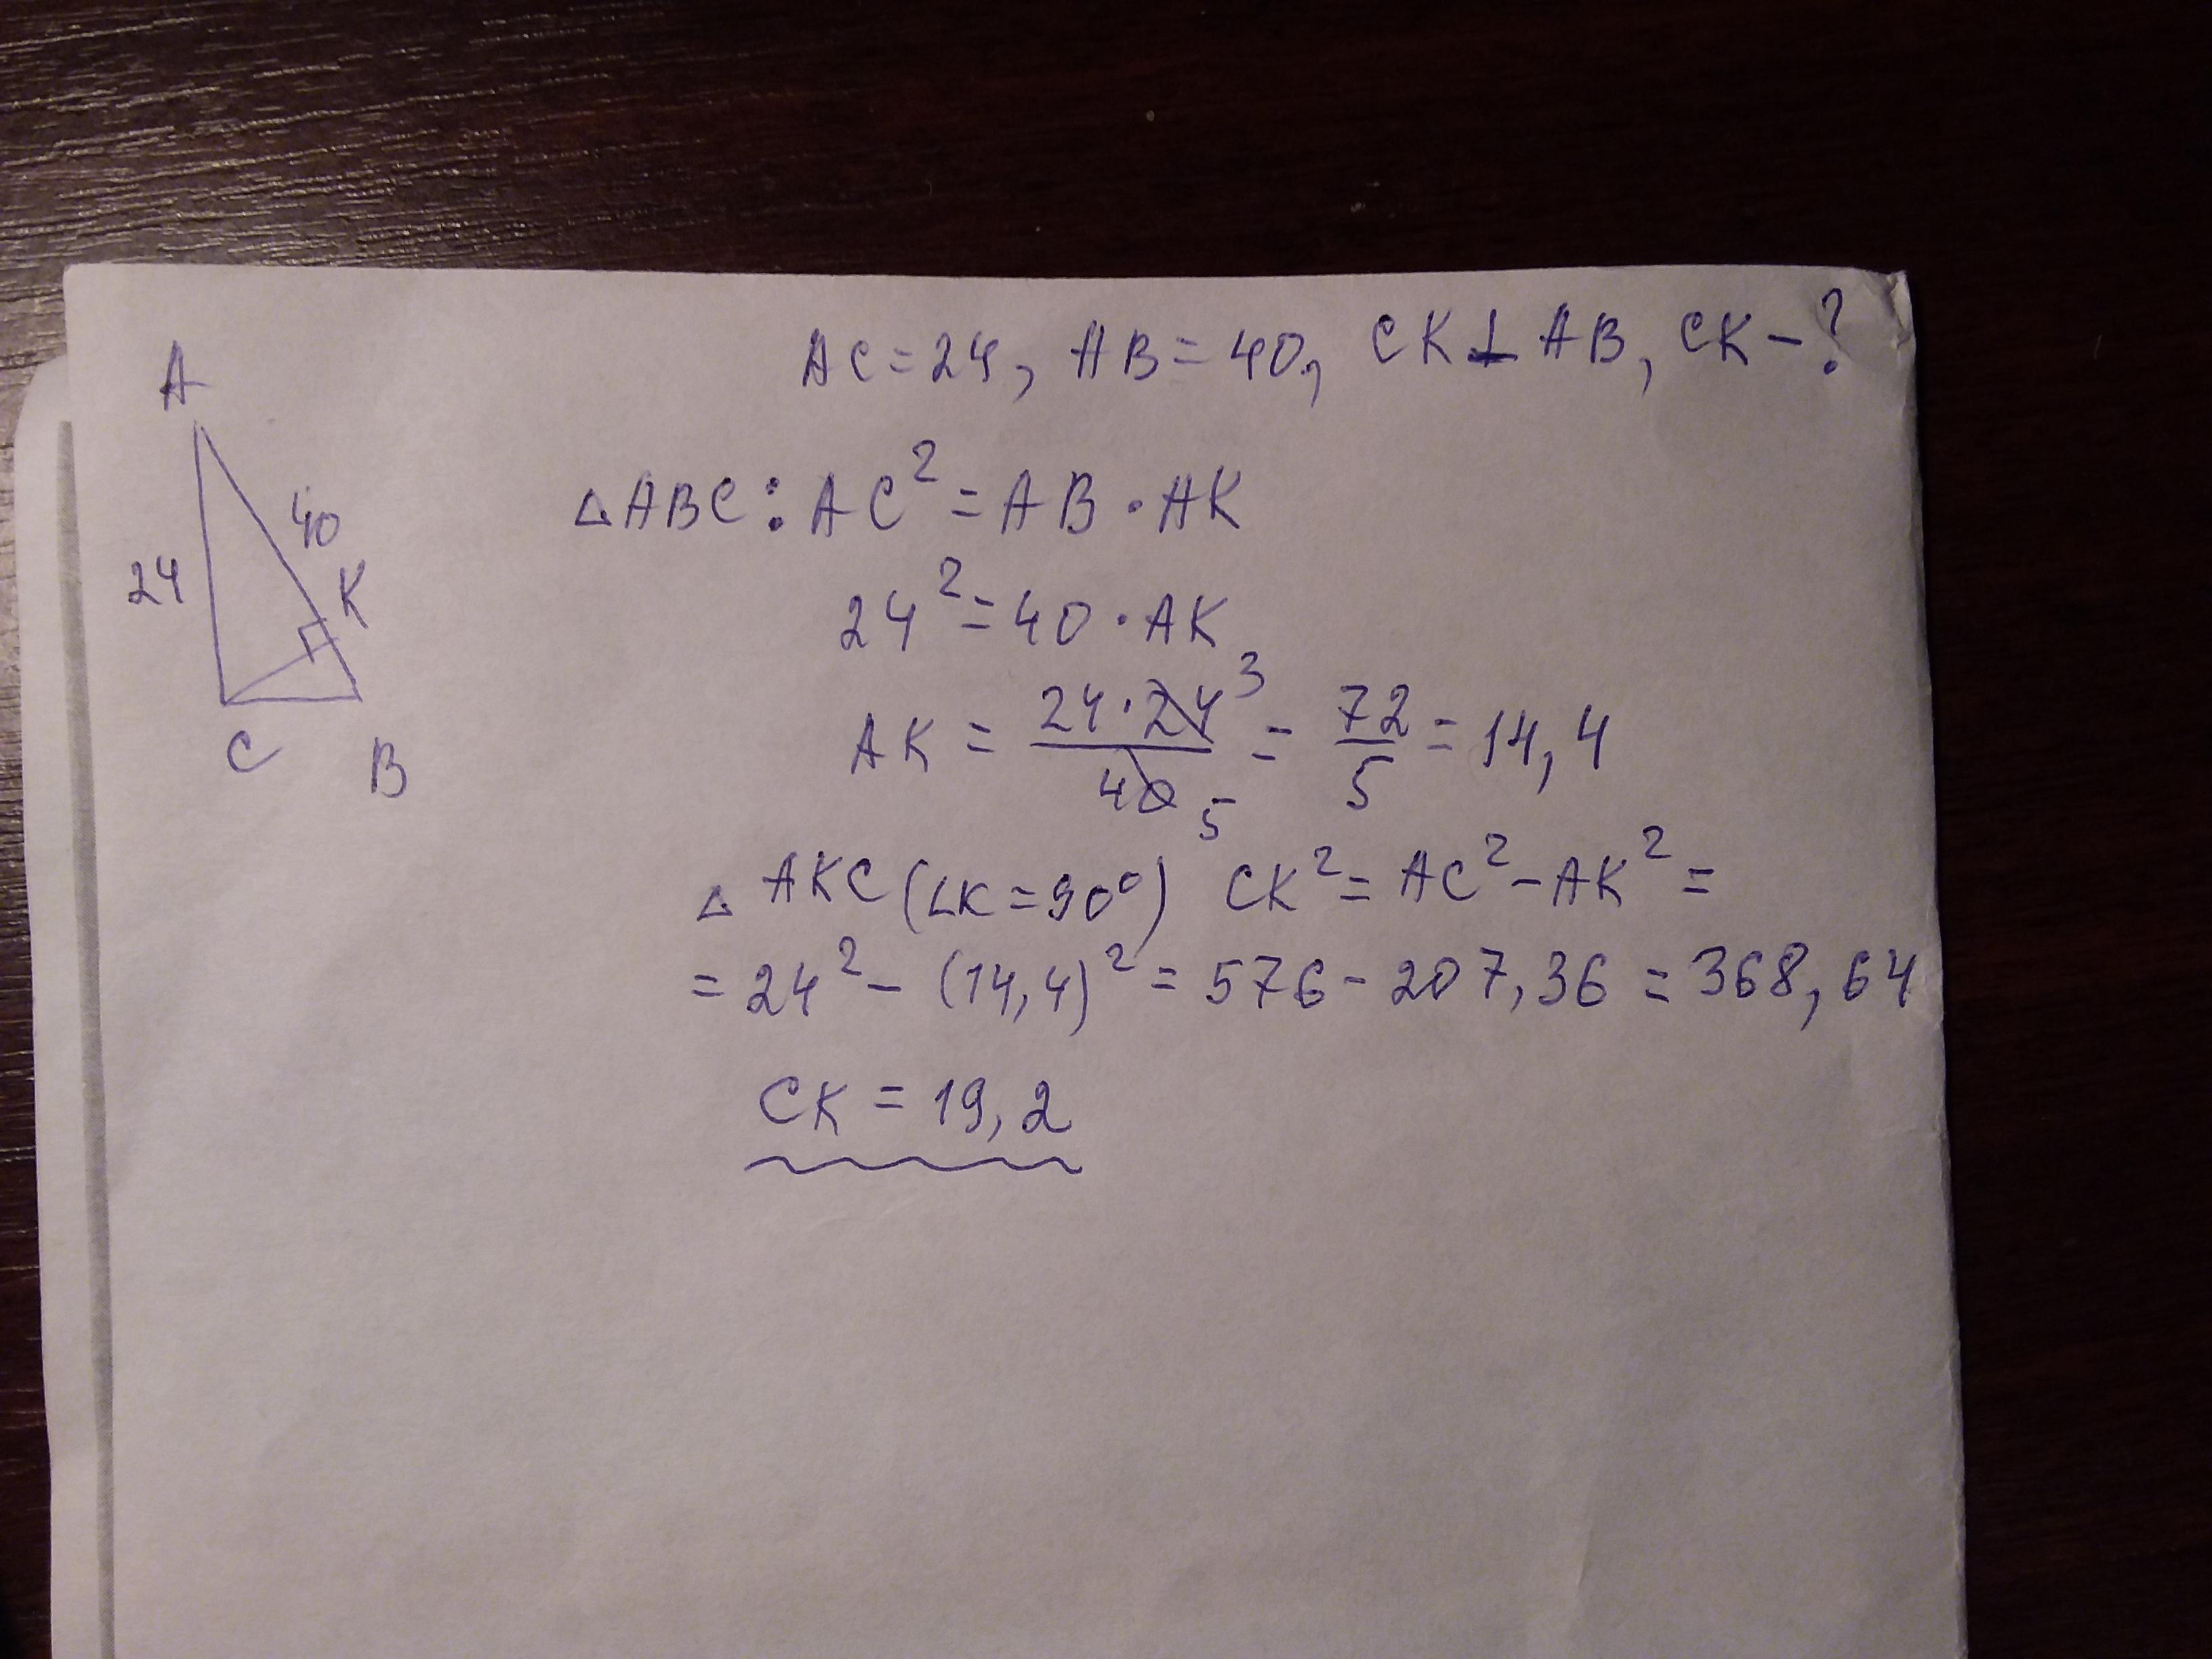 AC = 24, AB = 40, CK ⊥ AB, CK - ?
A
40
24
K
C
B
△ABC: AC² = AB · AK
24² = 40 · AK
AK = 24 · 24 3 / 40 5 = 72/5 = 14,4
△ AKC (∠K = 90°) CK² = AC² - AK² =
= 24² - (14,4)² = 576 - 207,36 = 368,64
CK = 19,2